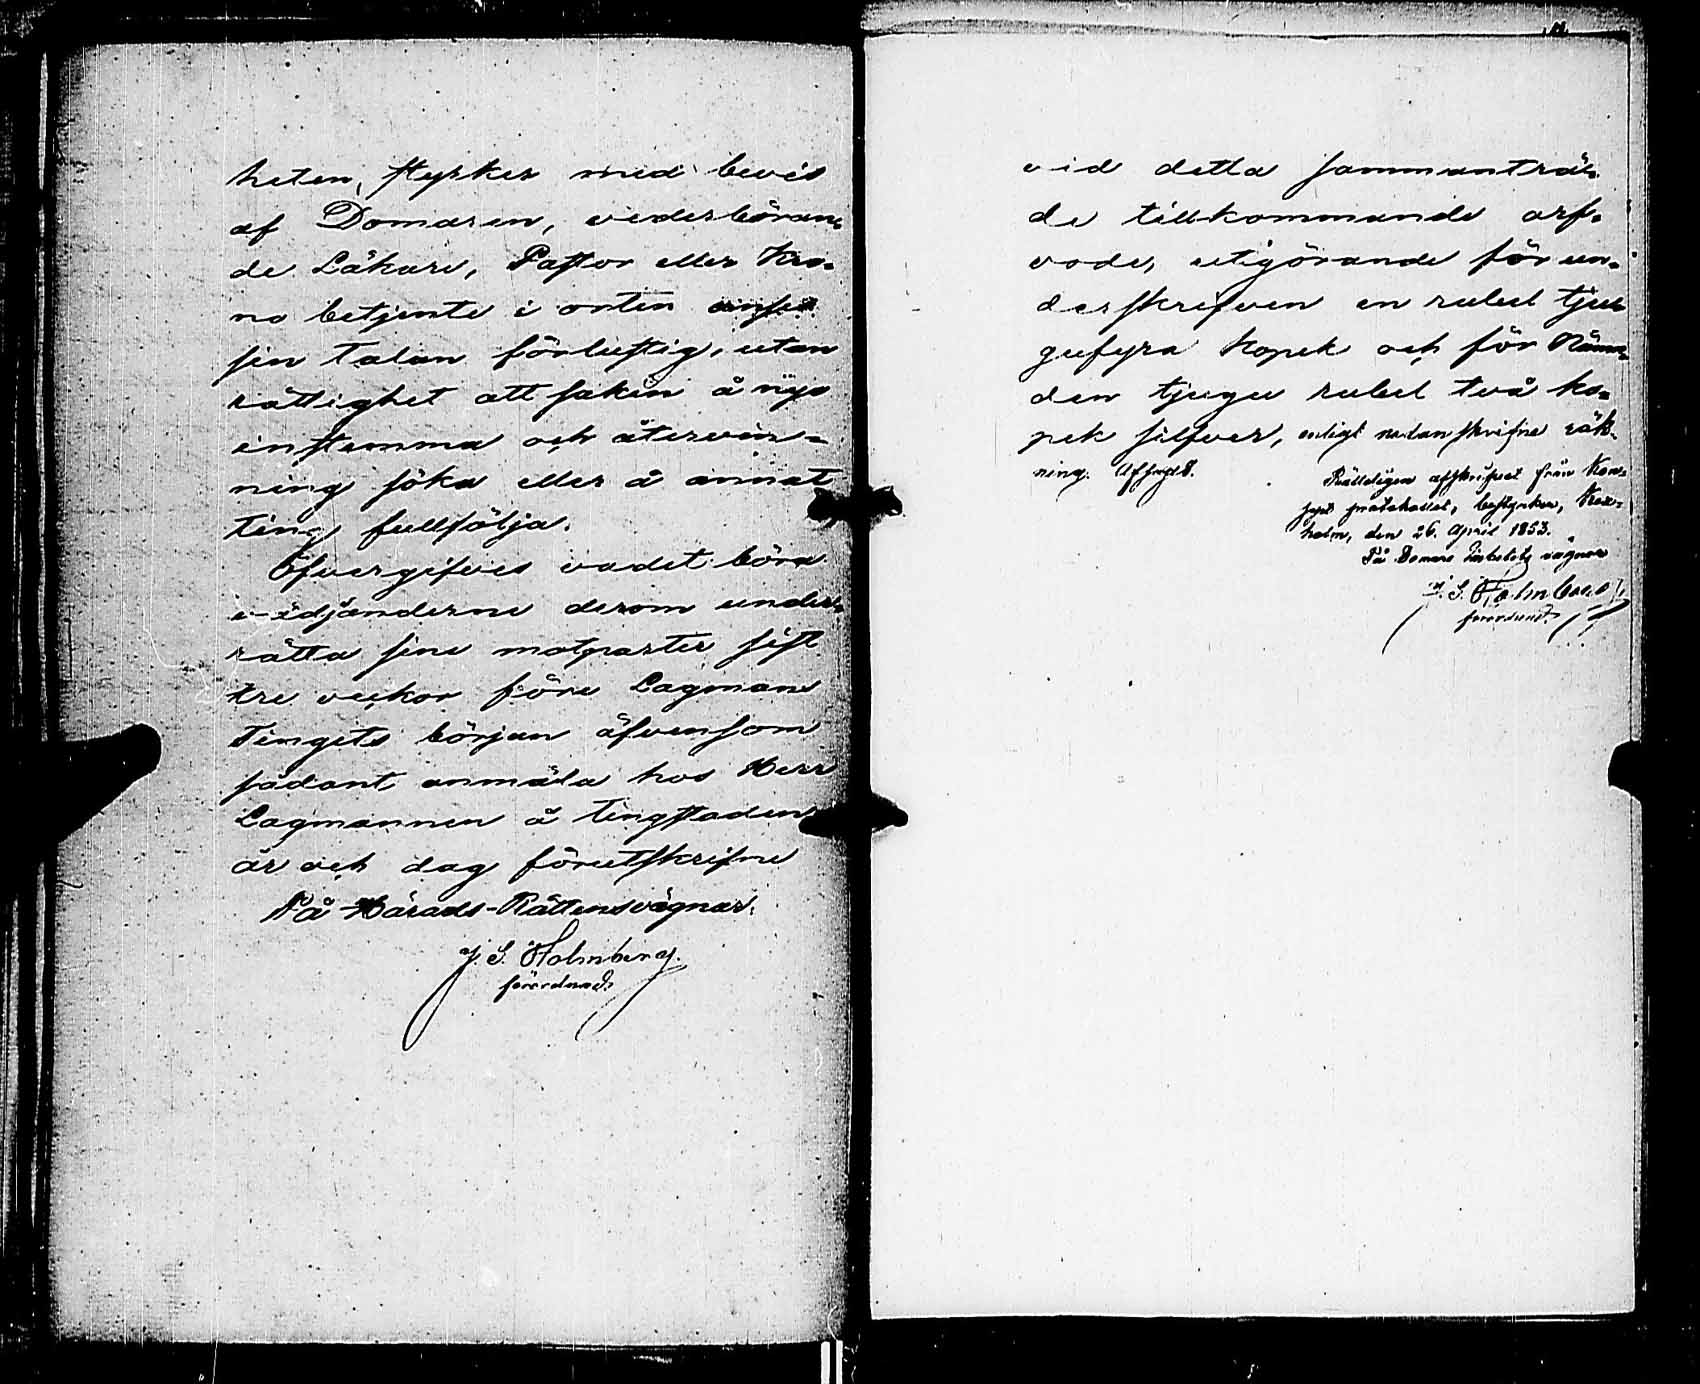 heten, styrker med bevis
af Domaren, vederböran-
de Läkare, Pastor eller Kro-
no betjente i orten anses
sin talan förlustig, utan
rättighet att saken å nyo
instemma och återvin-
ning söka eller å annat
ting fullfölja.
Öfvergifves vadet böra
vädjanderne derom under-
rätta sine motparter sist
tre veckor före Lagmans
Tingets början äfvensom
sådant anmäla hos Herr
Lagmannen å tingstaden
år och dag förutskrifne
På Härads-Rättens vägnar:
J. S. Holmberg.
förordnad.
vid detta sammanträ-
de tillkommande arf-
vode, utgörande för un-
derskrifven en rubel tju-
gufyra kopek och för Nämn-
den tjugu rubel två ko-
pek silfver, enligt nedanskrifne räk-
ning. Afsagdt.
Rätteligen afskrifvet från Kon-
sept protokollet, bestyrker, Kex-
holm, den 26. April 1853.
På Domare Embetets vägnar
J. S. Holmberg
förordnad.